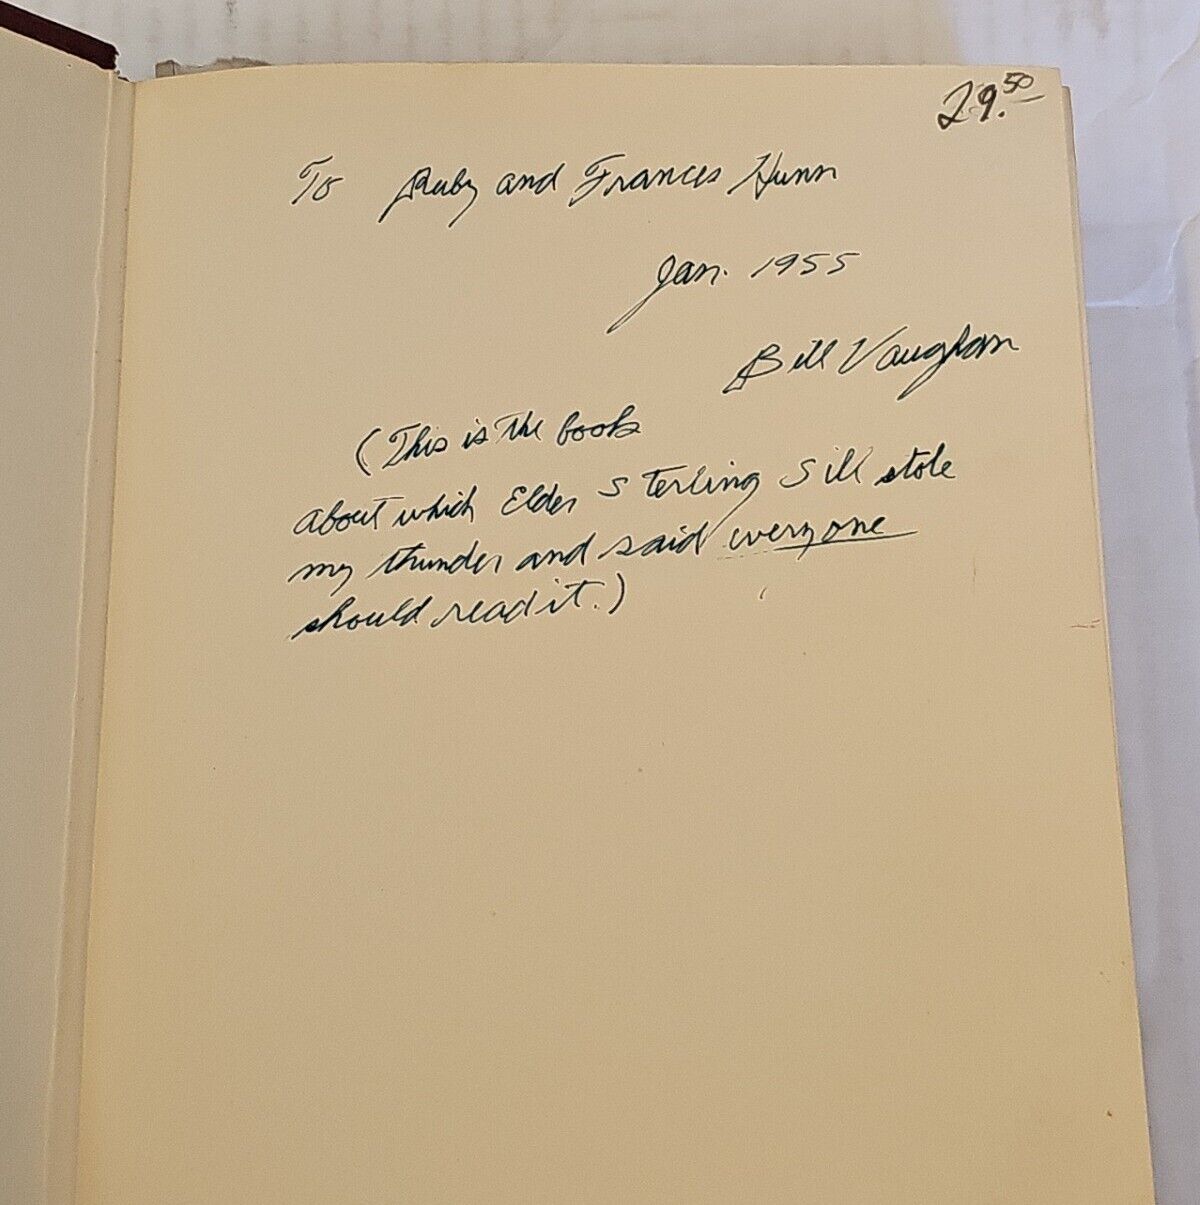 29.50
To Ruby and Frances Hunn
Jan. 1955
Bill Vaughan
(This is the book
about which Elder Sterling Sill stole
my thunder and said everyone
should read it.)